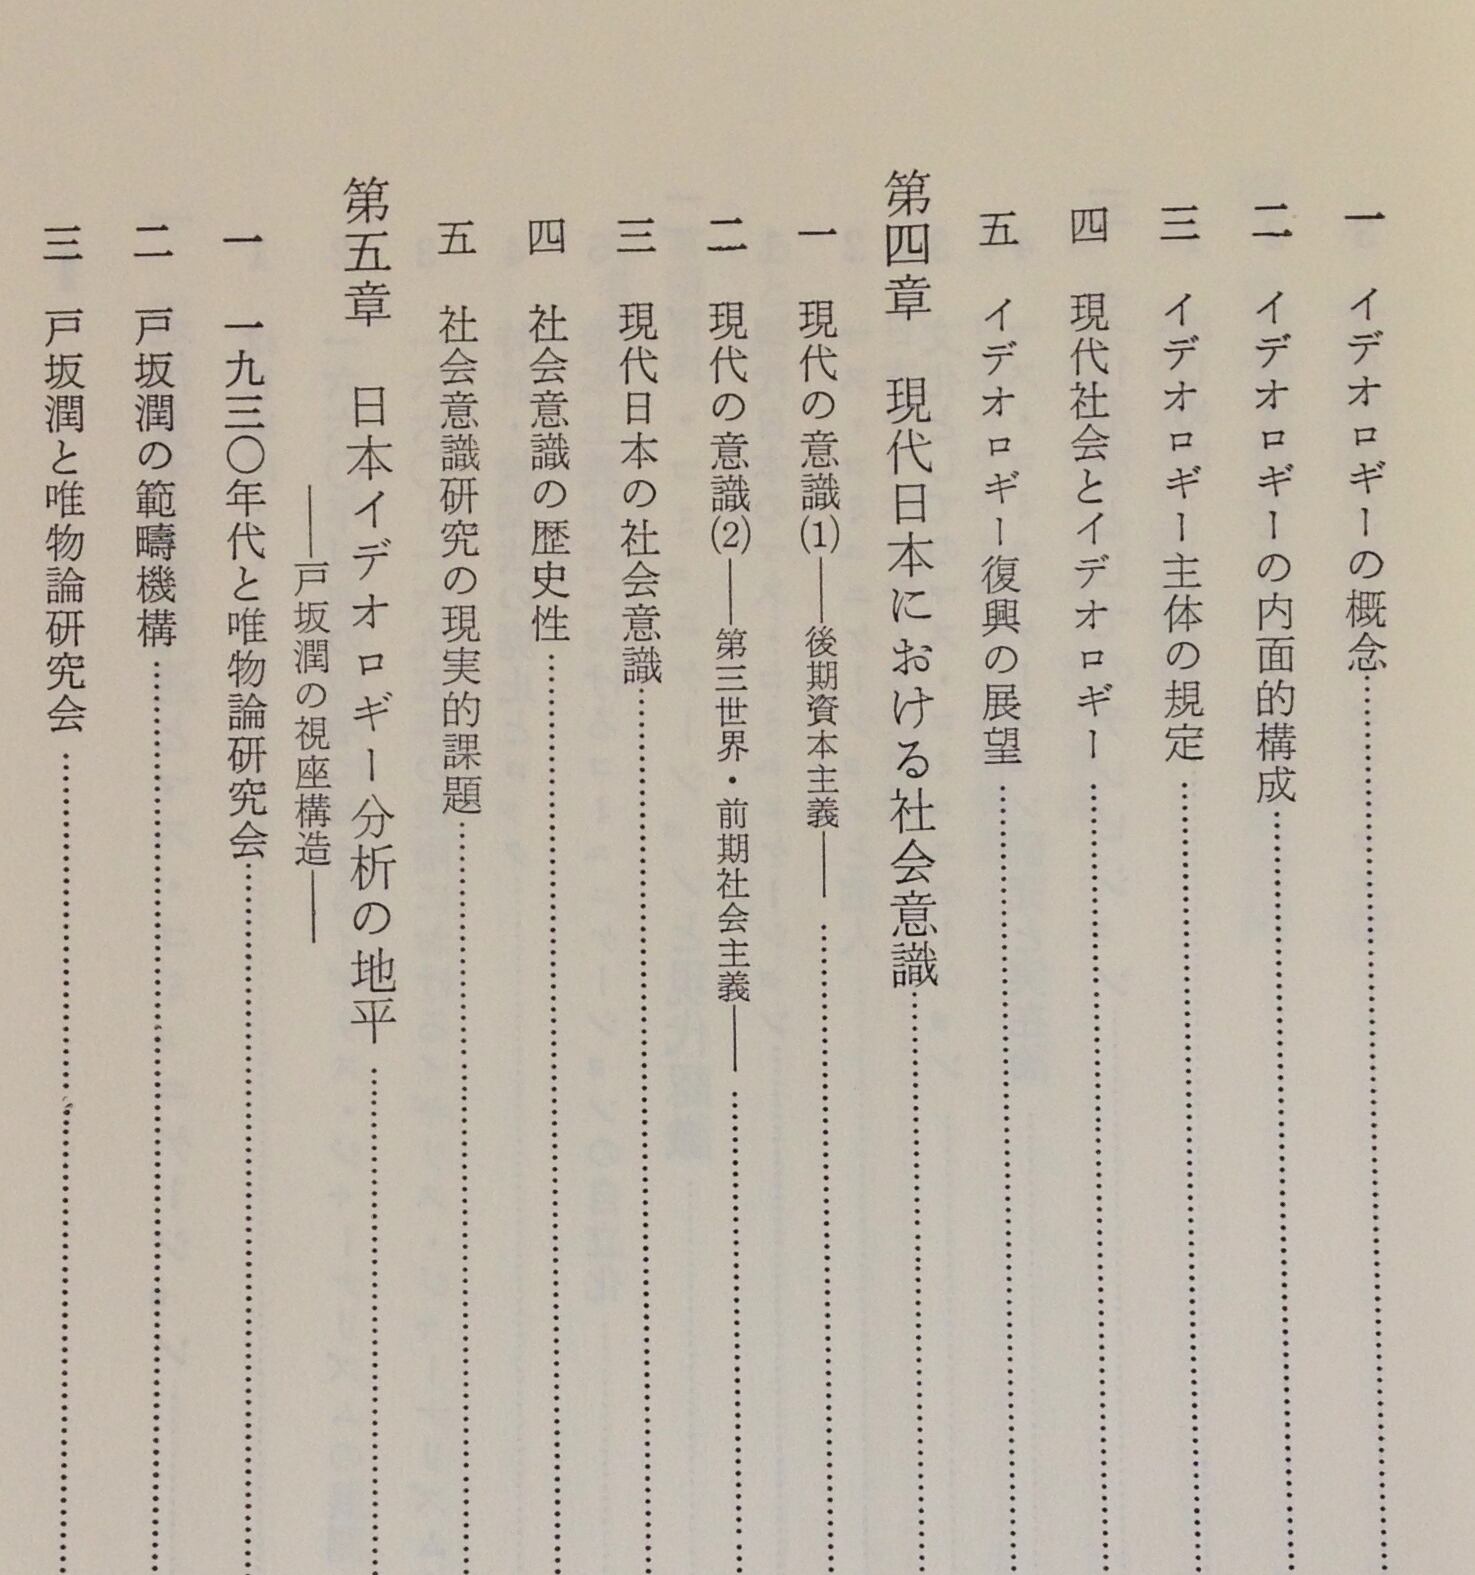 一 イデオロギーの概念
二 イデオロギーの内面的構成
三 イデオロギー主体の規定
四 現代社会とイデオロギー
五 イデオロギー復興の展望
第四章 現代日本における社会意識
一 現代の意識(1)――後期資本主義――
二 現代の意識(2)――第三世界・前期社会主義――
三 現代日本の社会意識
四 社会意識の歴史性
五 社会意識研究の現実的課題
第五章 日本イデオロギー分析の地平
――戸坂潤の視座構造――
一 一九三〇年代と唯物論研究会
二 戸坂潤の範疇機構
三 戸坂潤と唯物論研究会